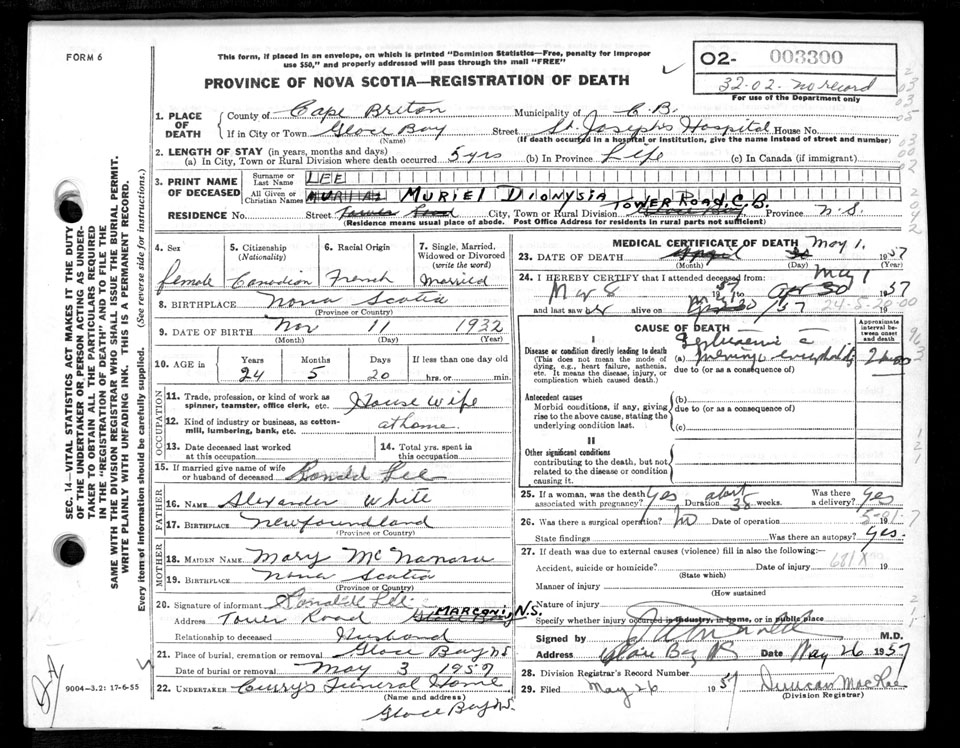 FORM 6
This form, if placed in an envelope, on which is printed "Dominion Statistics—Free, penalty for improper
use $50," and properly addressed will pass through the mail "FREE"
PROVINCE OF NOVA SCOTIA—REGISTRATION OF DEATH
02- 003300
32-02. no record
For use of the Department only
1. PLACE OF DEATH
County of Cape Breton Municipality of C.B.
If in City or Town Glace Bay Street St. Joseph's Hospital House No.
(Name) (If death occurred in a hospital or institution, give the name instead of street and number)
2. LENGTH OF STAY (in years, months and days)
(a) In City, Town or Rural Division where death occurred 5 yrs (b) In Province Life (c) In Canada (if immigrant)
3. PRINT NAME OF DECEASED
Surname or Last Name LEE
All Given or Christian Names MURIEL DIONYSIA
RESIDENCE No. Street Tower Road City, Town or Rural Division TOWER ROAD, C.B. Province N.S.
(Residence means usual place of abode. Post Office Address for residents in rural parts not sufficient)
4. Sex female
5. Citizenship (Nationality) Canadian
6. Racial Origin French
7. Single, Married, Widowed or Divorced (write the word) Married
8. BIRTHPLACE Nova Scotia
(Province or Country)
9. DATE OF BIRTH Nov 11 1932
(Month) (Day) (Year)
10. AGE in Years 24 Months 5 Days 20 If less than one day old hrs. or min.
OCCUPATION
11. Trade, profession, or kind of work as spinner, teamster, office clerk, etc. House wife
12. Kind of industry or business, as cotton-mill, lumbering, bank, etc. at home
13. Date deceased last worked at this occupation
14. Total yrs. spent in this occupation
15. If married give name of wife or husband of deceased Ronald Lee
FATHER
16. NAME Alexander White
17. BIRTHPLACE Newfoundland
(Province or Country)
MOTHER
18. MAIDEN NAME Mary McNamara
19. BIRTHPLACE Nova Scotia
(Province or Country)
20. Signature of informant Ronald Lee
Address Tower Road MARCONI, N.S.
Relationship to deceased Husband
21. Place of burial, cremation or removal Glace Bay NS
Date of burial or removal May 3 1957
22. UNDERTAKER Curry's Funeral Home
(Name and address)
Glace Bay NS.
9004—3.2: 17-6-55
MEDICAL CERTIFICATE OF DEATH
23. DATE OF DEATH May 1. 1957
(Month) (Day) (Year)
24. I HEREBY CERTIFY that I attended deceased from:
Mar 8 1957 to May 1 1957
and last saw her alive on
24-5-20-00
CAUSE OF DEATH
Approximate interval between onset and death
I
Disease or condition directly leading to death
(This does not mean the mode of dying, e.g., heart failure, asthenia, etc. It means the disease, injury, or complication which caused death.)
(a)
due to (or as a consequence of)
Antecedent causes
Morbid conditions, if any, giving rise to the above cause, stating the underlying condition last.
(b)
due to (or as a consequence of)
(c)
II
Other significant conditions
contributing to the death, but not related to the disease or condition causing it.
25. If a woman, was the death associated with pregnancy? Yes Duration about 38 weeks. Was there a delivery? Yes
26. Was there a surgical operation? No Date of operation 19
State findings Was there an autopsy? Yes.
27. If death was due to external causes (violence) fill in also the following:—
Accident, suicide or homicide? Date of injury 19
(State which)
681X
Manner of injury
(How sustained)
Nature of injury
Specify whether injury occurred in industry, in home, or in public place
Signed by M.D.
Address Glace Bay NS Date May 26 1957
28. Division Registrar's Record Number
29. Filed May 26 1957 Duncan MacRae
(Division Registrar)
SEC. 14—VITAL STATISTICS ACT MAKES IT THE DUTY
OF THE UNDERTAKER OR PERSON ACTING AS UNDER-
TAKER TO OBTAIN ALL THE PARTICULARS REQUIRED
IN THE "REGISTRATION OF DEATH" AND TO FILE THE
SAME WITH THE DIVISION REGISTRAR WHO SHALL ISSUE THE BURIAL PERMIT.
WRITE PLAINLY WITH UNFADING INK—THIS IS A PERMANENT RECORD.
Every item of information should be carefully supplied. (See reverse side for instructions.)